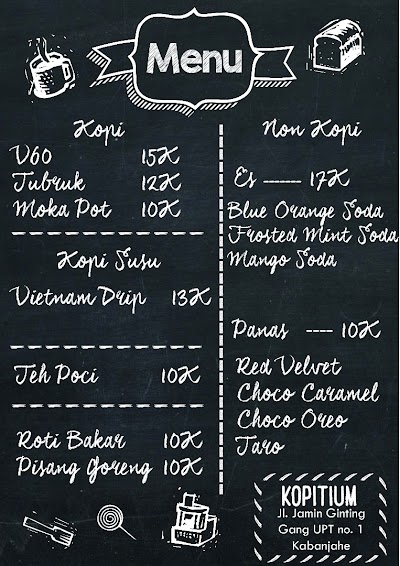 Menu
Kopi
V60 15K
Tubruk 12K
Moka Pot 10K
Kopi Susu
Vietnam Drip 13K
Teh Poci 10K
Roti Bakar 10K
Pisang Goreng 10K
Non Kopi
Es ------ 17K
Blue Orange Soda
Frosted Mint Soda
Mango Soda
Panas ---- 10K
Red Velvet
Choco Caramel
Choco Oreo
Taro
KOPITIUM
Jl. Jamin Ginting
Gang UPT no. 1
Kabanjahe